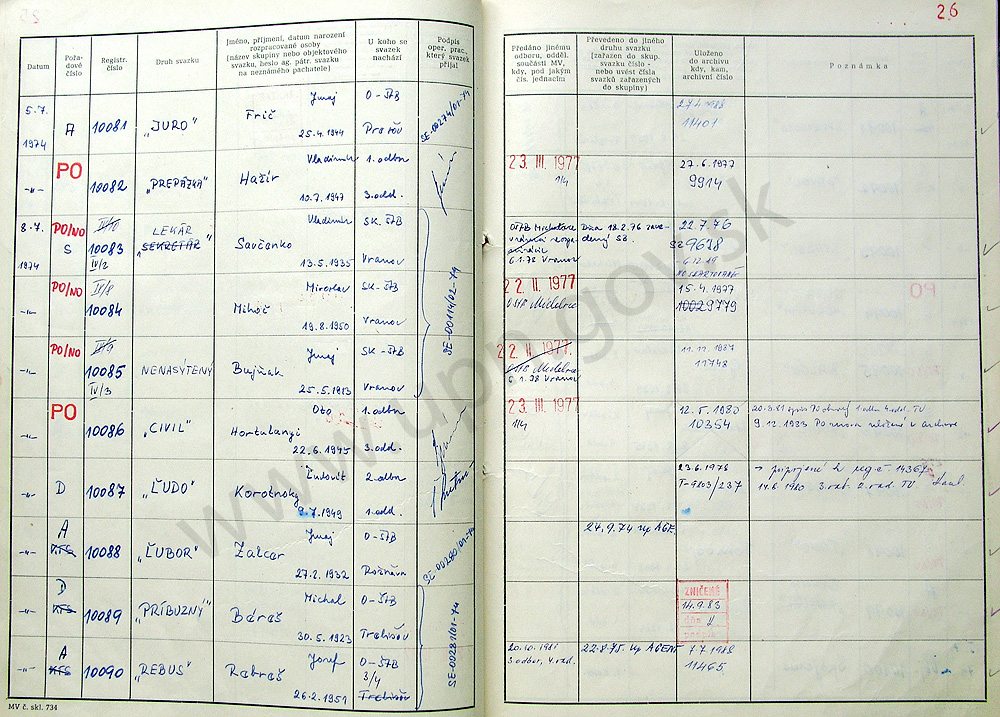 26
Datum
Pořa-
dové
číslo
Registr.
číslo
Druh svazku
Jméno, příjmení, datum narození
rozpracované osoby
(název skupiny nebo objektového
svazku, heslo ag. pátr. svazku
na neznámého pachatele)
U koho se
svazek
nachází
Podpis
oper. prac.,
který svazek
přijal
Předáno jinému
odboru, odděl.
součásti MV,
kdy, pod jakým
čís. jednacím
Převedeno do jiného
druhu svazku
(zařazen do skup.
svazku číslo -
nebo uvést čísla
svazků zařazených
do skupiny)
Uloženo
do archivu
kdy, kam,
archivní číslo
Poznámka
5.7.
1974
A
10081
„JURO"
Frič
Juraj
25.4.1944
O-ŠTB
Prešov
SE-00274/01-74
27.4.1988
11401
-"-
PO
10082
„PREPÁŽKA"
Hažír
Vladimír
10.7.1947
1. odbor
3. odd.
23. III. 1977
1/4
27.6.1977
9914
8.7.
1974
PO/NO
S
10083
IV/2
LEKÁR
„SEKRETÁR"
Savčenko
Vladimír
13.5.1935
SK. ŠTB
Vranov
SE-00114/02-74
6.1.78 Vranov
22.7.76
9618
-"-
PO/NO
IV/8
10084
Mihóč
Miroslav
19.8.1950
SK-ŠTB
Vranov
22. II. 1977
15.4.1977
10029779
-"-
PO/NO
10085
IV/3
NENASÝTENÝ
Bujňak
Juraj
25.5.1913
SK-ŠTB
Vranov
22. II. 1977.
6.1.78 Vranov
11.12.1987
11748
-"-
PO
10086
„CIVIL"
Hortulanyi
Oto
22.6.1945
1. odbor
3. odd.
23. III. 1977
1/4
12.5.1980
10354
9.12.1983 PO znova uložené v archive
-"-
D
10087
„ĽUDO"
Korotnoky
Ľudovít
9.7.1949
2. odbor
1. odd.
23.6.1976
T-9803/237
14.6.1980
-"-
A
10088
„ĽUBOR"
Zalcer
Juraj
27.2.1932
O-ŠTB
Rožňava
SE-00280/01-74
24.9.74 up AGE
-"-
D
KTS
10089
„PRÍBUZNÝ"
Béreš
Michal
30.5.1923
O-ŠTB
Trebišov
SE-00281/01-74
ZNIČENÉ
14.9.83
dňa
podpis
-"-
A
KTS
10090
„REBUS"
Rebroš
Jozef
26.2.1951
O-ŠTB
3/4
Trebišov
20.10.1981
3. odbor, 4. rad.
22.8.75. up AGENT
7.7.1988
11465
MV č. skl. 734
www.upn.gov.sk